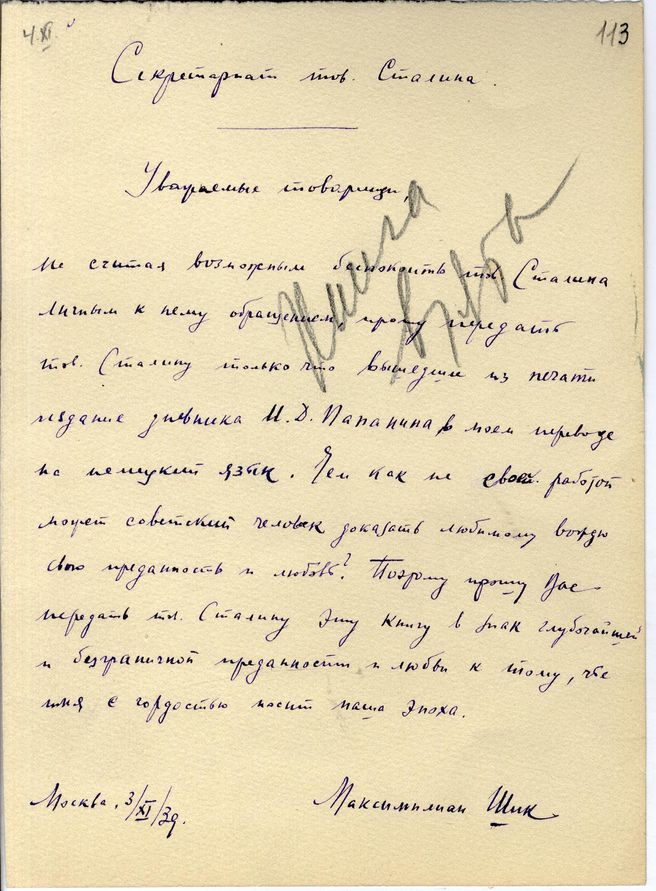 4.XI.
113
Секретариат тов. Сталина.
Уважаемые товарищи,
Книга
Не считая возможным беспокоить тов. Сталина
личным к нему обращением, прошу передать
тов. Сталину только что вышедшие из печати
издание дневника И. Д. Папанина в моем переводе
на немецкий язык. Чем как не своей работой
может советский человек доказать любимому вождю
свою преданность и любовь? Поэтому прошу Вас
передать тов. Сталину эту книгу в знак глубочайшей
и безграничной преданности и любви к тому, чье
имя с гордостью носит наша эпоха.
Москва, 3/XI/39.
Максимилиан Шик.